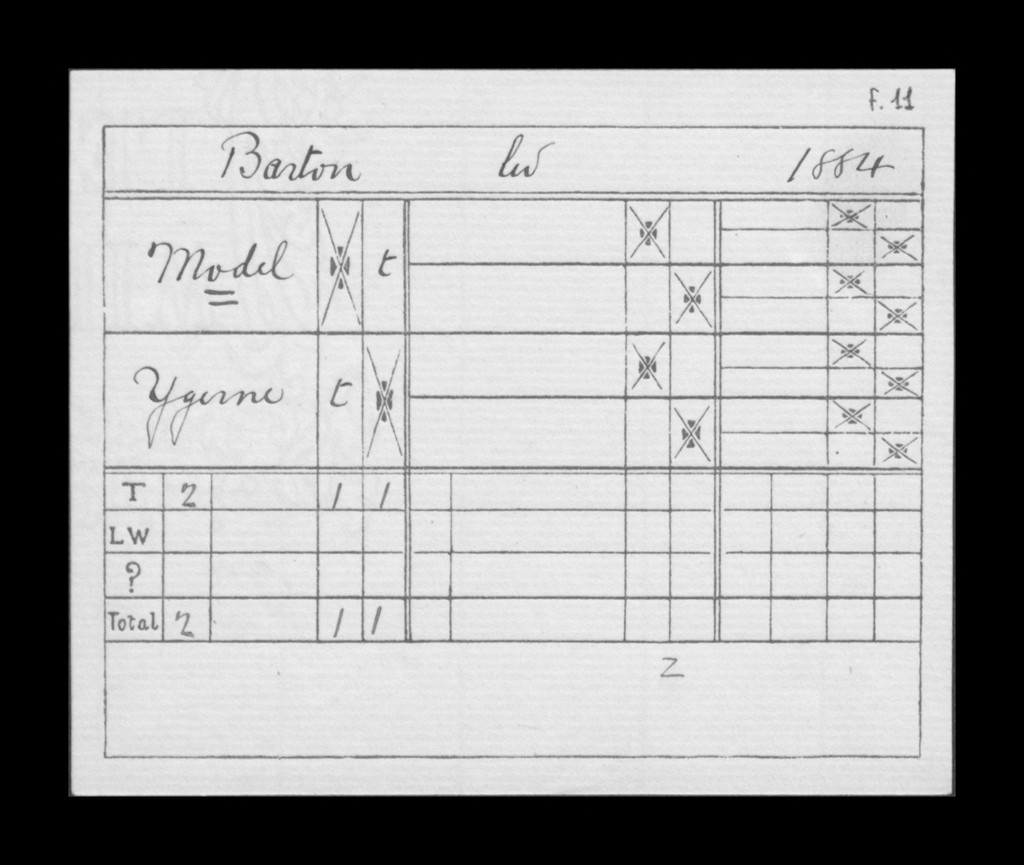 f. 11
Barton lw 1884
Model t
Ygerne t
T 2 1 1
LW
?
Total 2 1 1
2